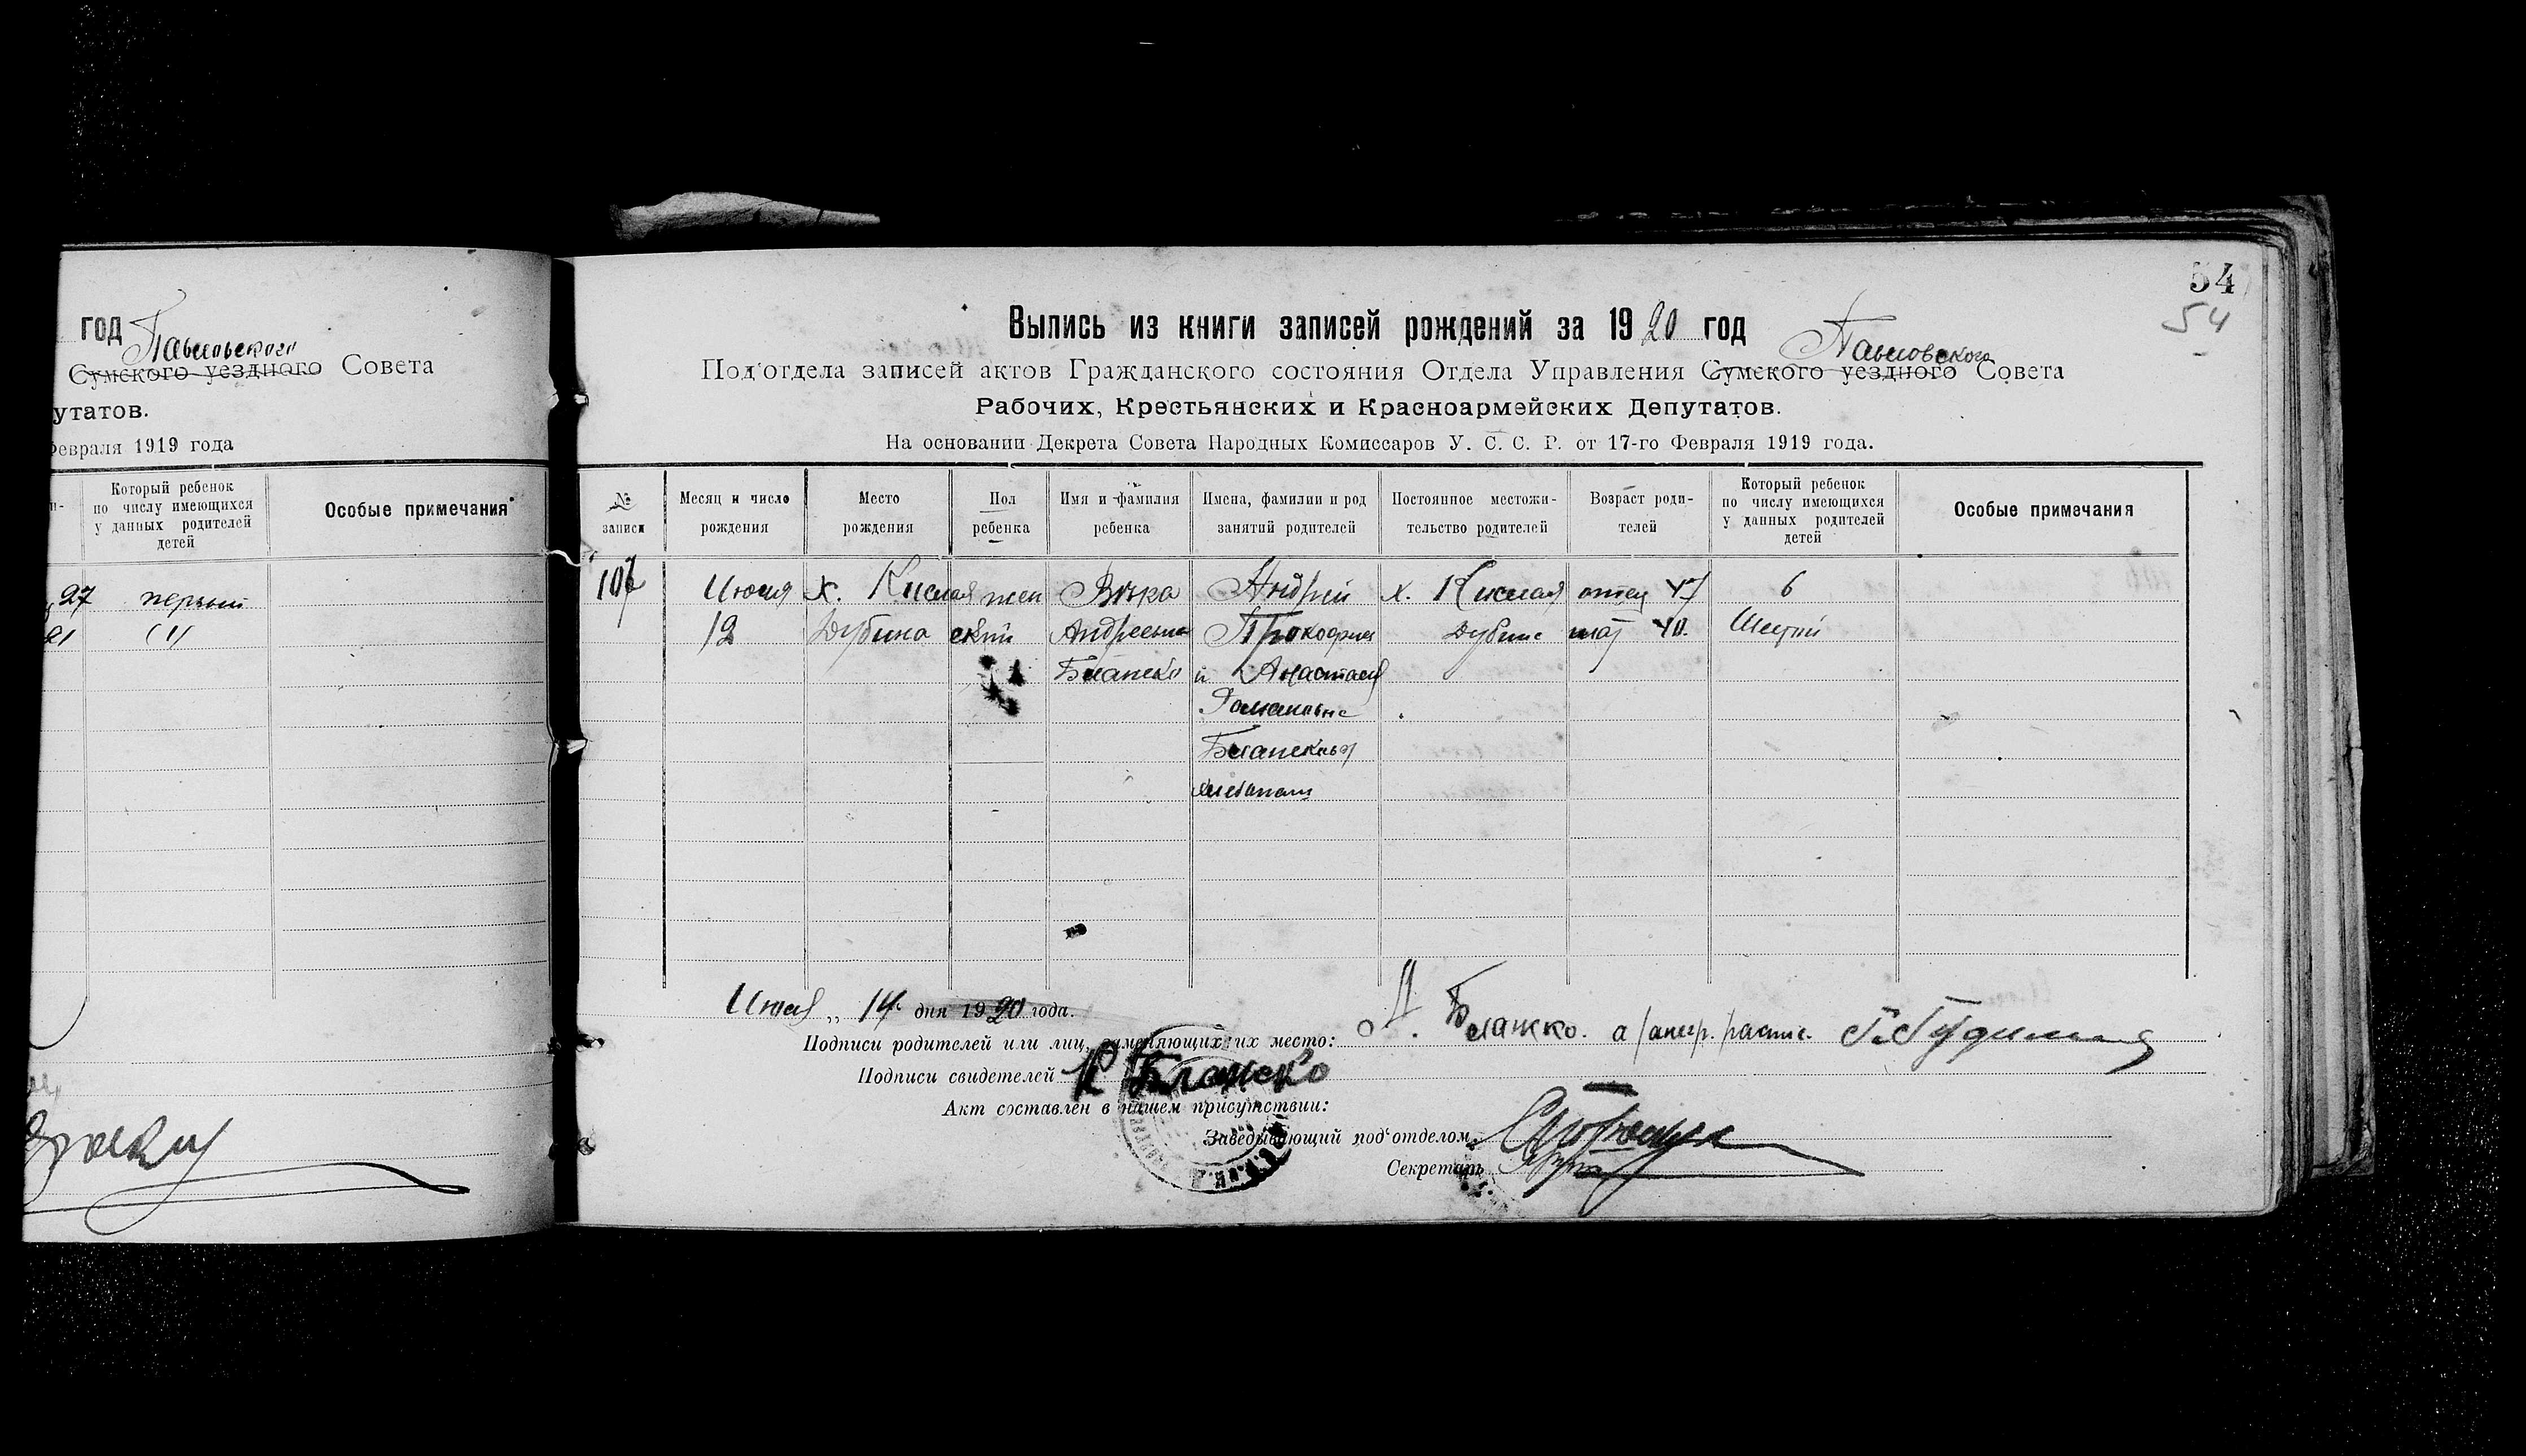 год
Сумского уездного Совета
утатов.
Февраля 1919 года
Который ребенок
по числу имеющихся
у данных родителей
детей
Особые примечания
27 первый
21 (1)
54
54
Выпись из книги записей рождений за 1920 год
Павловского
Под'отдела записей актов Гражданского состояния Отдела Управления Сумского уездного Совета
Рабочих, Крестьянских и Красноармейских Депутатов.
На основании Декрета Совета Народных Комиссаров У. С. С. Р. от 17-го Февраля 1919 года.
№ записи
Месяц и число рождения
Место рождения
Пол ребенка
Имя и фамилия ребенка
Имена, фамилии и род занятий родителей
Постоянное местожи-тельство родителей
Возраст роди-телей
Который ребенок по числу имеющихся у данных родителей детей
Особые примечания
107 Июня х. Кислая жен Вѣка Андрей х. Кислая отец 47 6
12 Дубина ский Андреевна Прокофиев Дубина мат 40. Шестой
Блажко и Анастасия
Романовна
Блажковы
хлебопаш
Июня „ 14 дня 1920 года.
Подписи родителей или лиц, заменяющих их место: А. Блажко. а
Подписи свидетелей К Блажко
Акт составлен в нашем присутствии:
Заведывающий под'отделом
Секретарь